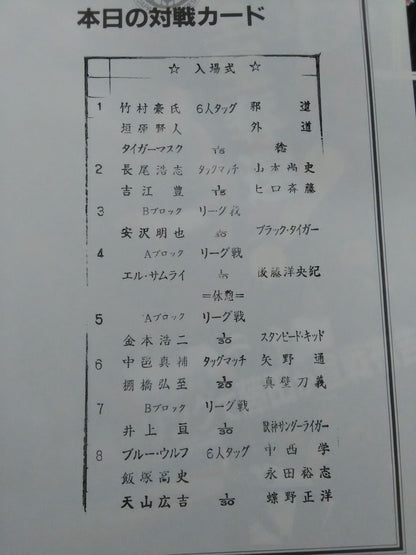 本日の対戦カード
☆ 入場式 ☆
1 竹村豪氏 6人タッグ 邪道
垣原賢人 外道
タイガーマスク 1/15 稔
2 長尾浩志 タックマッチ 山本尚史
吉江豊 1/15 ヒロ斉藤
3 Bブロック リーグ戦
安沢明也 ブラック・タイガー
4 Aブロック リーグ戦
エル・サムライ 後藤洋央紀
=休憩=
5 Aブロック リーグ戦
金本浩二 1/30 スタンピード・キッド
6 中邑真補 タッグマッチ 矢野通
棚橋弘至 1/20 真壁刀義
7 Bブロック リーグ戦
井上亘 1/30 獣神サンダーライガー
8 ブルー・ウルフ 6人タッグ 中西学
飯塚高史 永田裕志
天山広吉 1/30 蝶野正洋